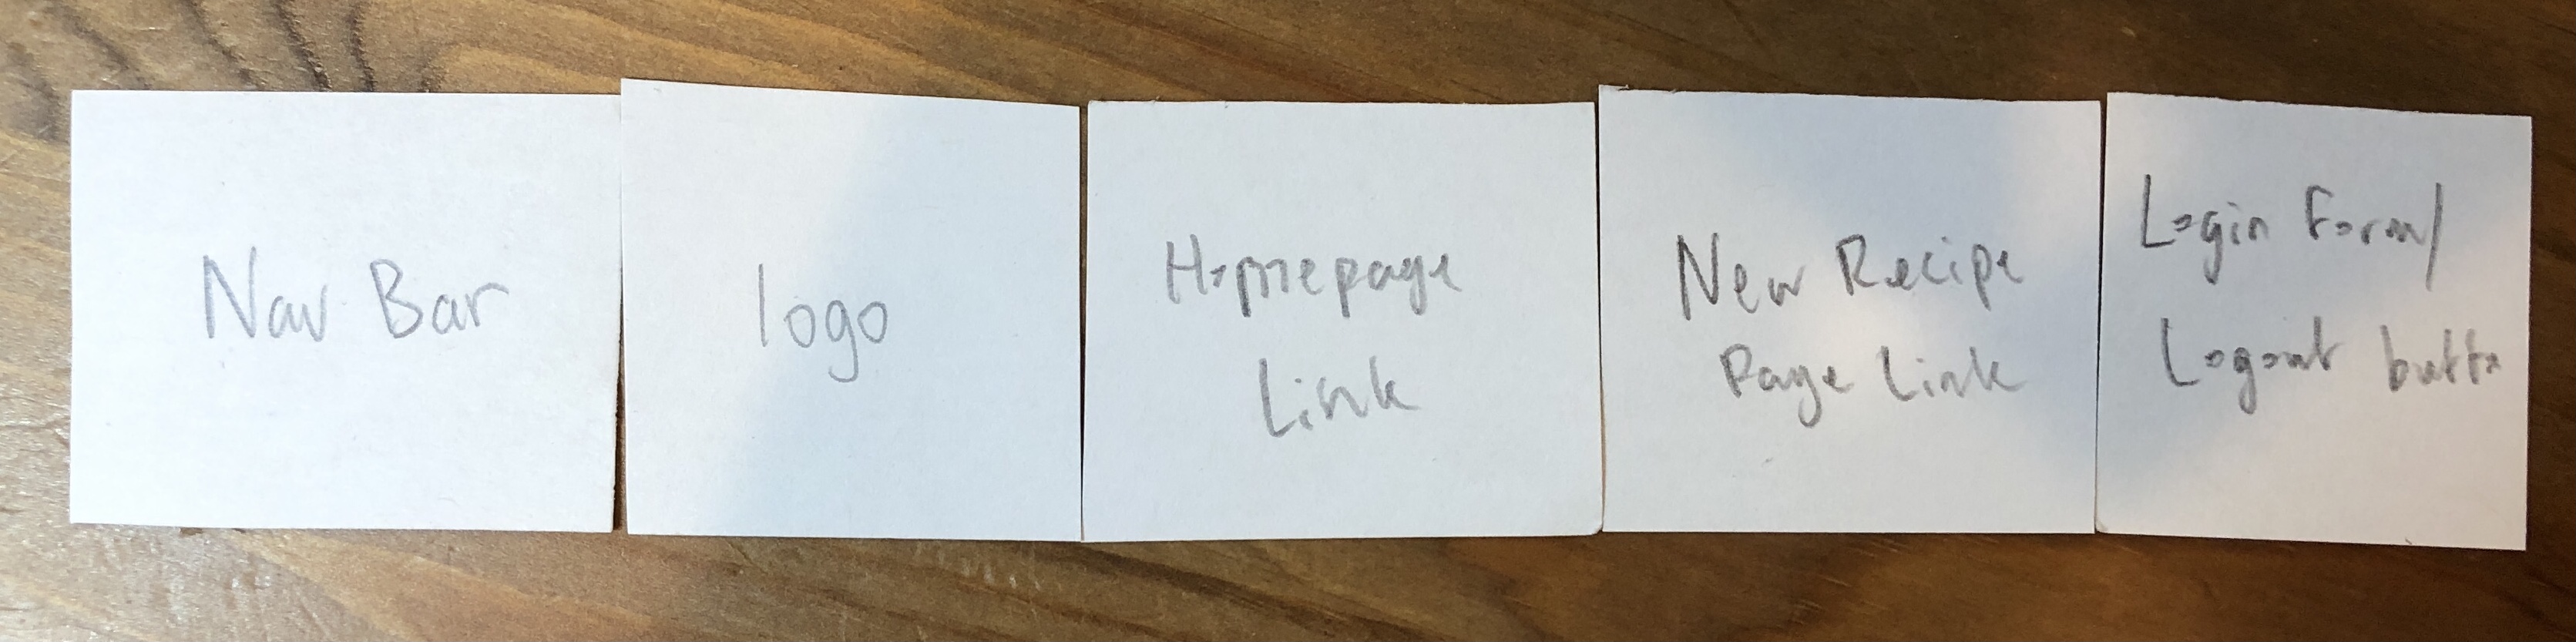 Nav Bar
logo
Homepage
Link
New Recipe
Page Link
Login Form/
Logout butto